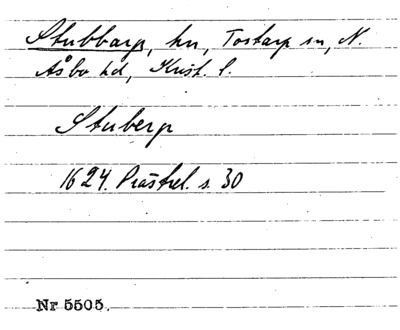 Stubbarp, hn, Tostarp sn, N.
Åsbo hd, Krist. l.
Stuberp
1624. Prästrel. s. 30
Nr 5505.